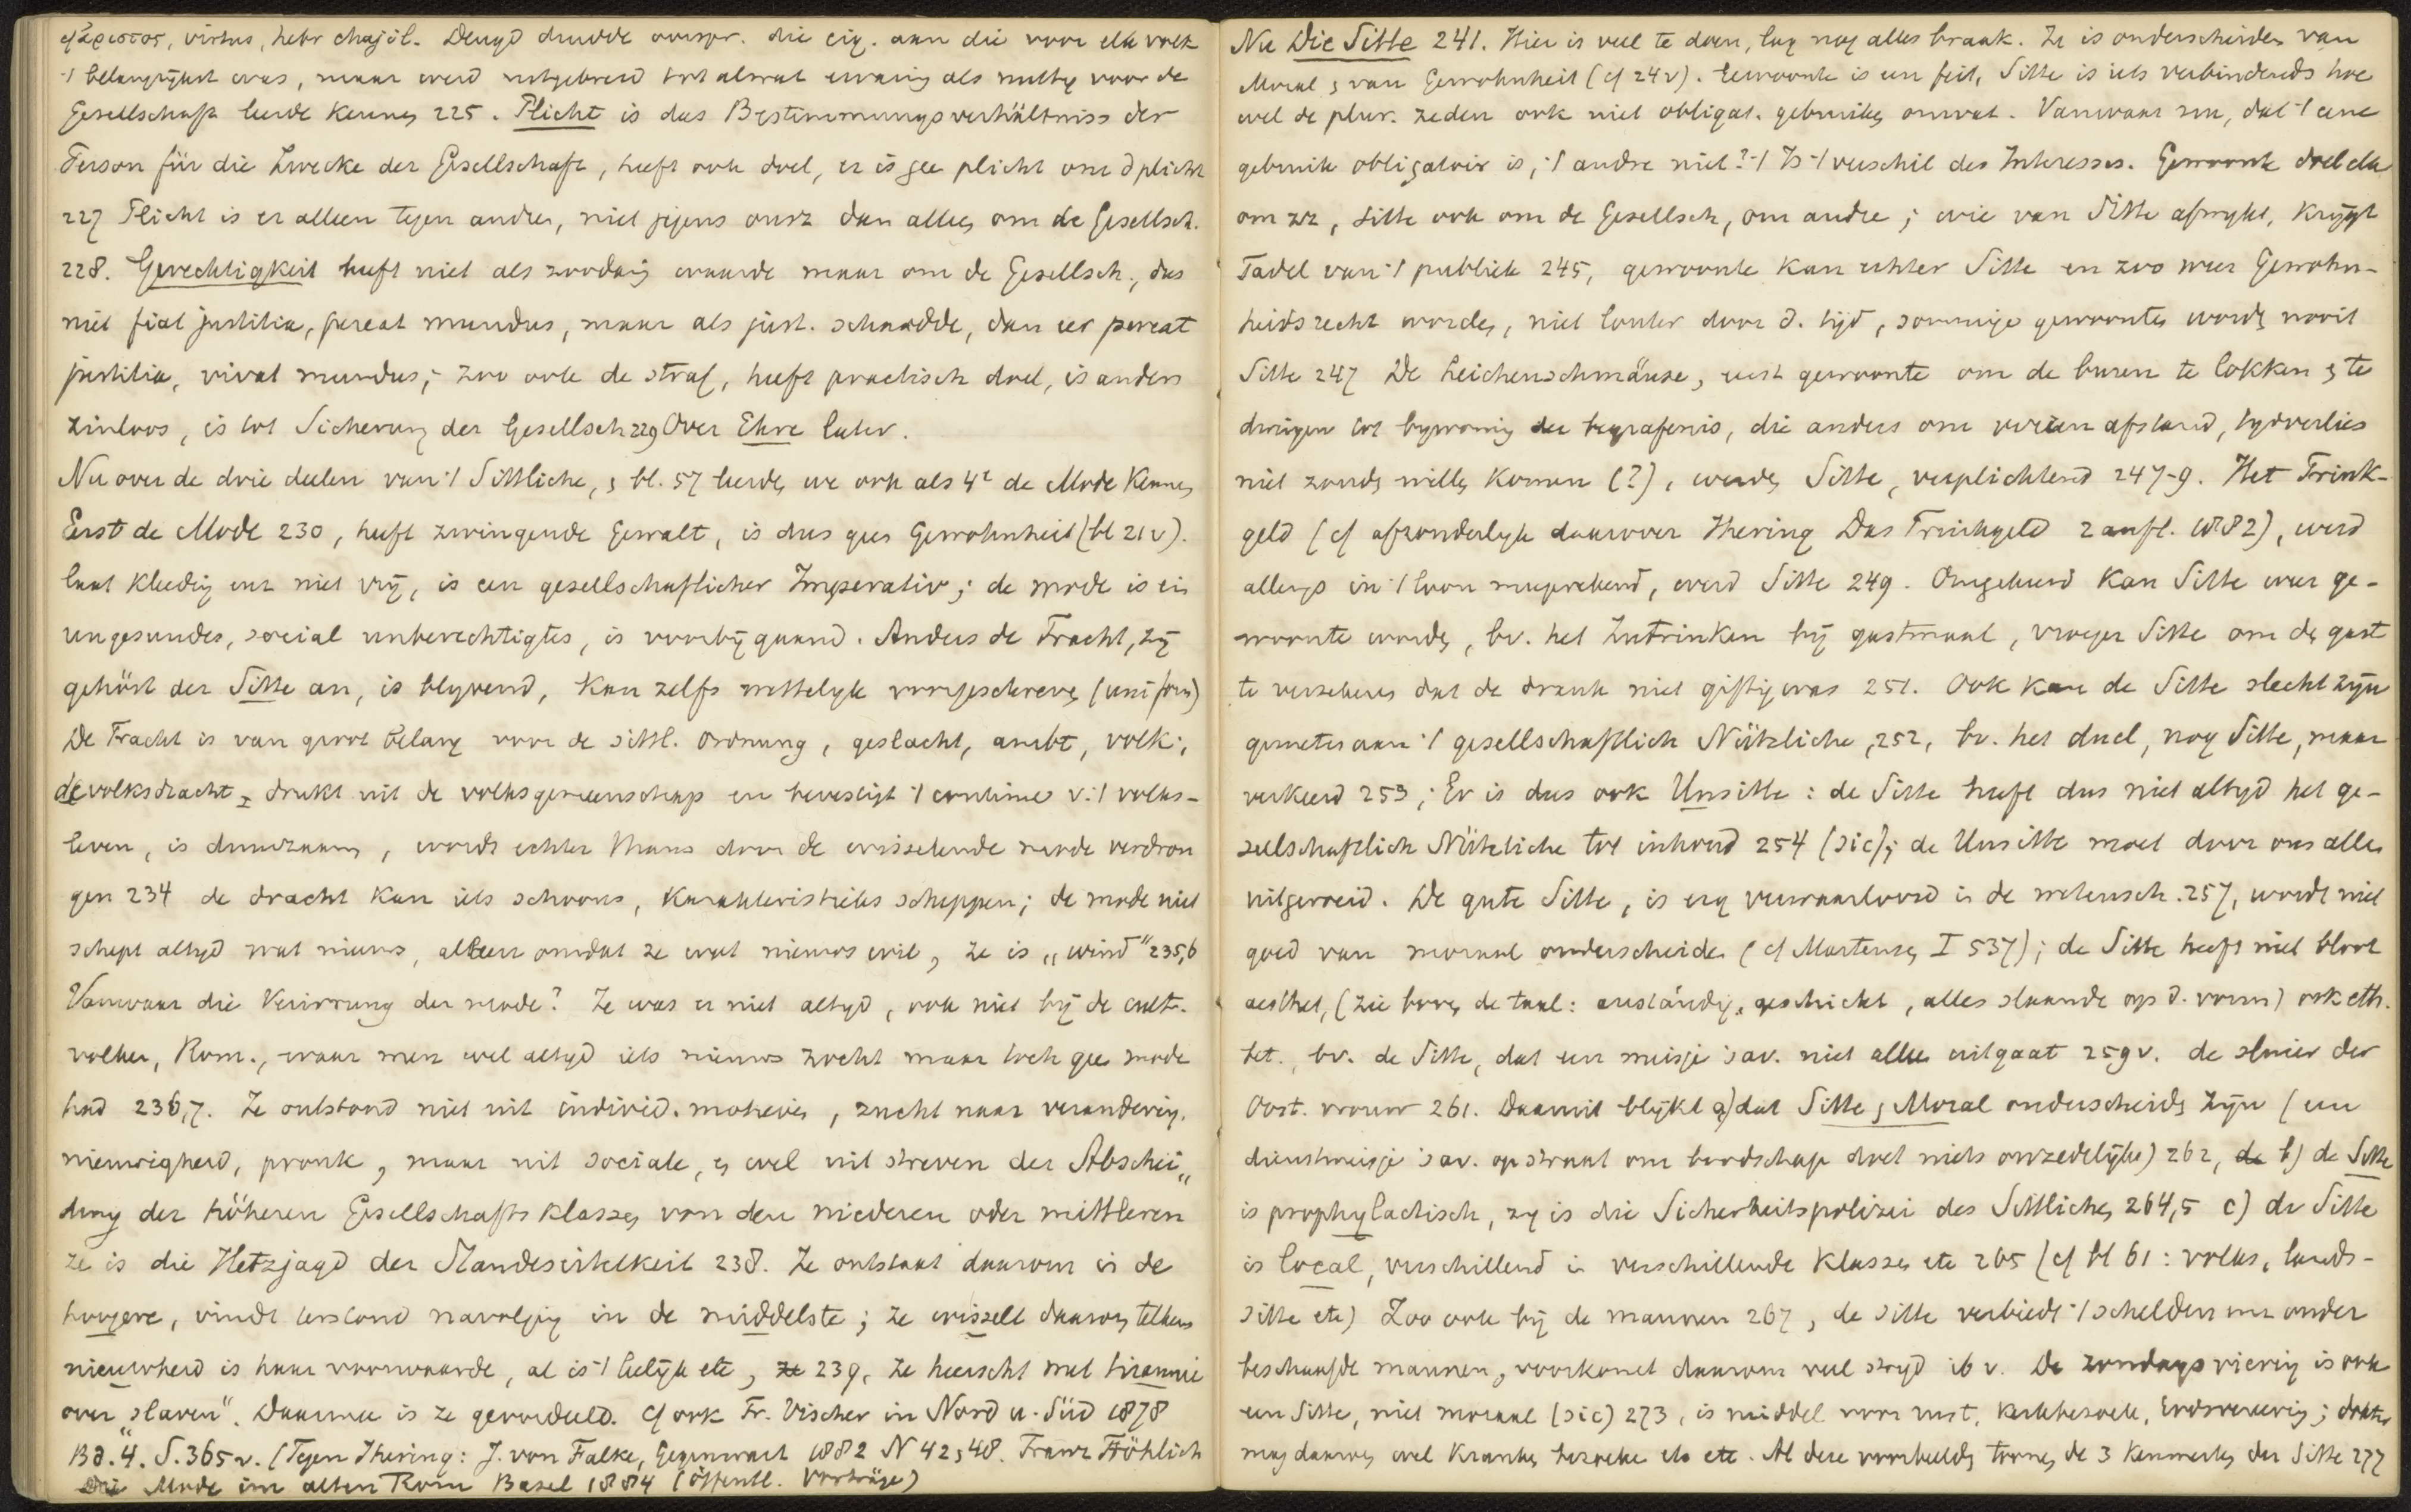 ἄριστος, virtus, hebr chajil. Deugd duidde oorspr. die eig. aan die voor elk volk
't belangrijkst was, maar werd uitgebreid tot alwat ervaring als nuttig voor de
Gesellschaft leerde kennen 225. Plicht is das Bestimmungsverhältniss der
Person für die Zwecke der Gesellschaft, heeft ook doel, er is gee plicht om d plicht
227 Plicht is er alleen tegen andren, niet jegens onsz dan alleen om de Gesellsch.
228. Gerechtigkeit heeft niet als zoodanig waarde maar om de Gesellsch., dus
niet fiat justitia, pereat mundus, maar als just. schaadde, dan eer pereat
justitia, vivat mundus; zoo ook de straf, heeft practisch doel, is anders
zinloos, is tot Sicherung der Gesellsch 229 Over Ehre later.
Nu over de drie deelen van 't Sittliche, en bl. 57 leerden we ook als 4e de Mode kennen
Eerst de Mode 230, heeft zwingende Gewalt, is dus geen Gewohnheit (bl 21v).
laat kleeding enz niet vrij, is een gesellschaftlicher Imperativ; de mode is ein
ungesundes, social unberechtigtes, is voorbijgaand. Anders de Tracht, zij
gehört der Sitte an, is blyvend, kan zelfs wettelijk voorgeschreven (uniform)
De Tracht is van groot belang voor de sittl. Ordnung, geslacht, ambt, volk;
de volksdracht drukt uit de volksgemeenschap en bevestigt 't continue v. 't volks-
leven, is duurzaam, wordt echter thans door de wisselende mode verdron
gen 234 de dracht kan iets schoons, karakteristieks scheppen; de mode niet
schept altyd wat nieuws, alleen omdat ze wat nieuws wil, ze is „wind" 235,6
Vanwaar die Verirrung der mode? Ze was er niet altyd, ook niet bij de cult.
volken, Rom., waar men wel altyd iets nieuws zocht maar toch gee mode
had 236,7. Ze ontstond niet uit individ. motieven, zucht naar verandering,
nieuwigheid, pronk, maar uit sociale, en wel uit streven der Abschei„
dung der höheren Gesellschaftsklassen von den niederen oder mittleren
ze is die Hetzjagd der Standeseitelkeit 238. Ze ontstaat daarom in de
hoogere, vindt terstond navolging in de middelste; ze wisselt daarom telkens
nieuwheid is haar voorwaarde, al is 't leelijk etc, ze 239, ze heerscht met tirannie
over „slaven". Daarmee is ze geoordeeld. Cf ook Fr. Vischer in Nord u. Süd 1878
Bd. 4. S. 365 v. (Tegen Ihering: J. von Falke, Gegenwart 1882 N 42, 48. Franz Fröhlich
Die Mode im alten Rom Basel 1884 (Öffentl. Vorträge)
Nu Die Sitte 241. Hier is veel te doen, lag nog alles braak. Ze is onderscheiden van
Moral en van Gewohnheit (cf 24v). Gewoonte is een feit, Sitte is iets verbindends hoe
wel de plur. zeden ook niet obligat. gebruiken omvat. Vanwaar nu, dat 't eene
gebruik obligatoir is, 't andre niet? 't Is 't verschil des Interesses. Gewoonte doet elk
om zz, Sitte ook om de Gesellsch, om andre; wie van Sitte afwykt, krijgt
Tadel van 't publiek 245, gewoonte kan echter Sitte en zoo weer Gewohn-
heidsrecht worden, niet louter door d. tijd, sommige gewoonten worden nooit
Sitte 247 De Leichenschmäuse, eerst gewoonte om de buren te lokken en te
dwingen tot bywoning der begrafenis, die anders om verren afstand, tydverlies
niet zouden willen komen (?), werden Sitte, verplichtend 247-9. Het Trink-
geld (cf afzonderlyk daarover Ihering Das Trinkgeld 2 aufl. 1882), werd
allengs in 't loon meegerekend, werd Sitte 249. Omgekeerd kan Sitte weer ge-
woonte worden, bv. het Zutrinken bij gastmaal, vroeger Sitte om den gast
te verzekeren dat de drank niet giftig was 251. Ook kan de Sitte slecht zijn
gemeten aan 't gesellschaftlich Nützliche, 252, bv. het duel, nog Sitte, maar
verkeerd 253; Er is dus ook Unsitte: de Sitte heeft dus niet altyd het ge-
sellschaftlich Nützliche tot inhoud 254 (sic); de Unsitte moet door ons allen
uitgeroeid. De gute Sitte, is erg verwaarloosd in de wetensch. 257, wordt niet
goed van moraal onderscheiden (cf Martensen I 537); de Sitte heeft niet bloot
aesthet, (zie boven de taal: anständig, geschickt, alles slaande op d. vorm) ook eth.
bet., bv. de Sitte, dat een meisje 's av. niet alleen uitgaat 259v. de sluier der
Oost. vrouw 261. Daaruit blijkt a) dat Sitte en Moral onderscheiden zijn (een
dienstmeisje 's av. op straat om boodschap doet niets onzedelijks) 262, b) de Sitte
is prophylactisch, zy is die Sicherheitspolizei des Sittlichen 264,5 c) de Sitte
is local, verschillend in verschillende klassen etc 265 (cf bl 61: volks, lands-
sitte etc) Zoo ook bij de mannen 267, de sitte verbiedt 't schelden enz onder
beschaafde mannen, voorkomt daarom veel stryd ib v. De zondagsviering is ook
een Sitte, niet moraal (sic) 273, is middel voor rust, kerkbezoek, Godsvereering;
mag daarom wel kranken bezoeken etc. Al deze voorbeelden toonen de 3 kenmerken der Sitte 277